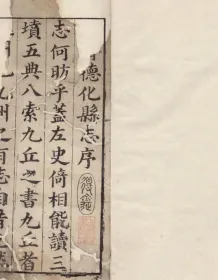 德化縣志序
志何昉乎蓋左史倚相能讀三
墳五典八索九丘之書九丘者
九州之
志
者